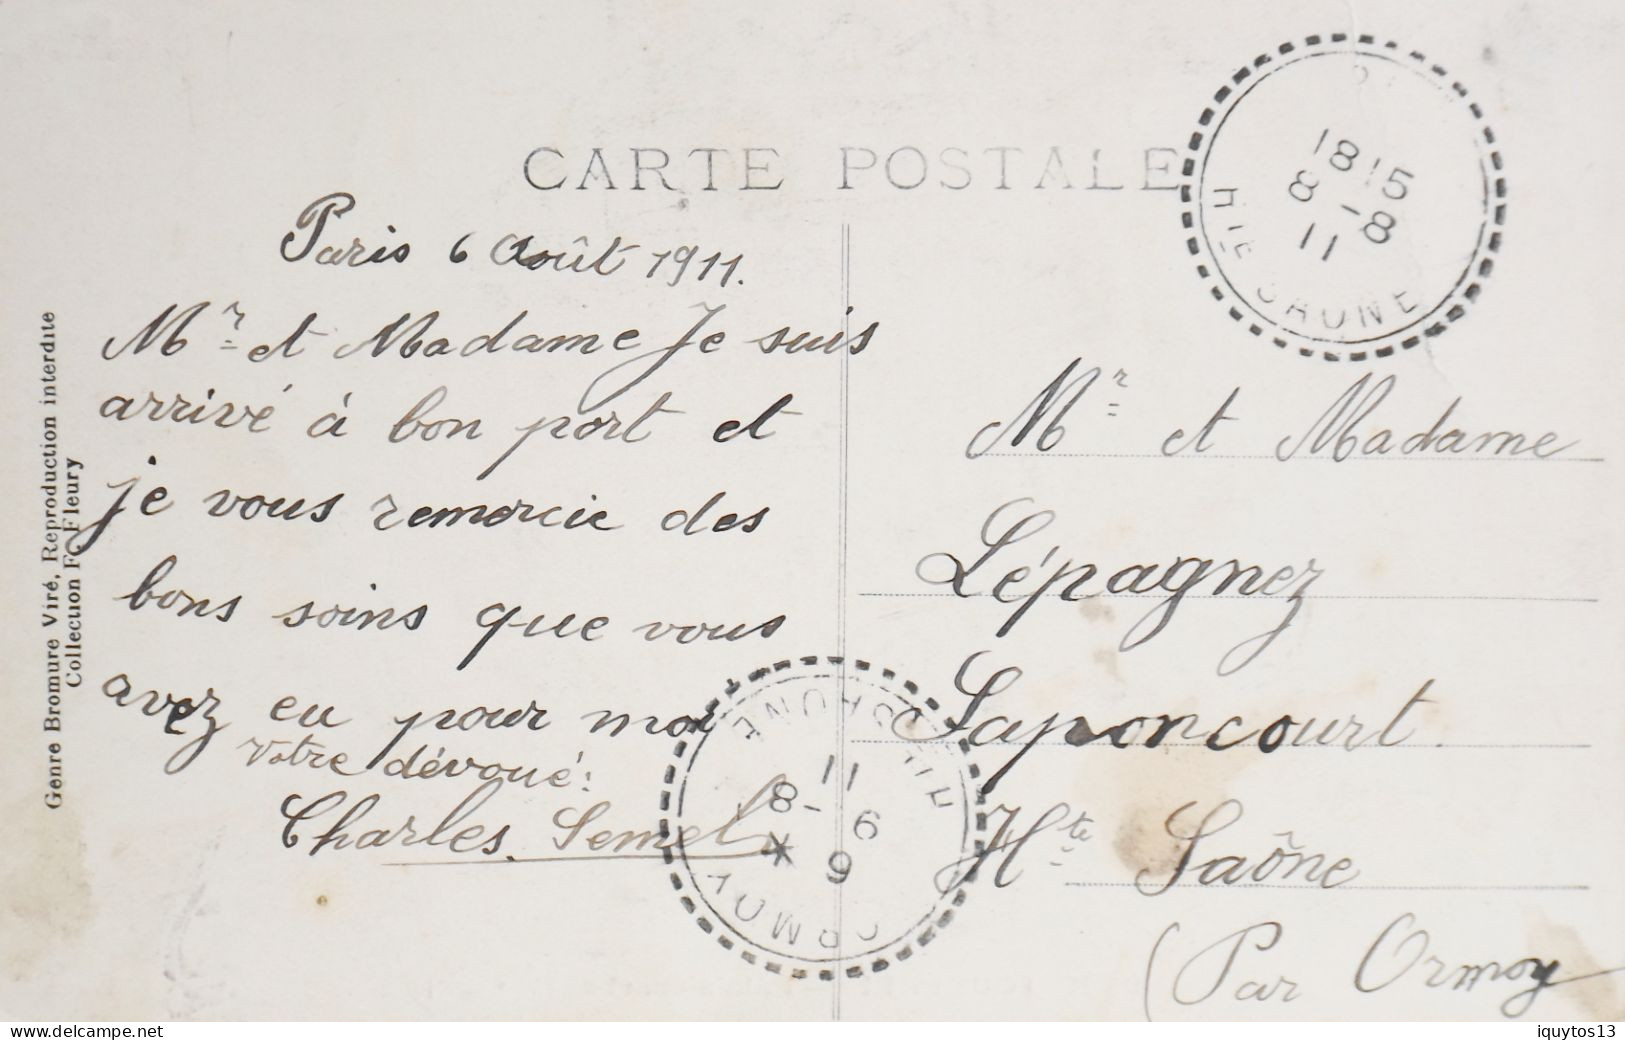 CARTE POSTALE
Paris 6 Août 1911.
Mr et Madame Je suis
arrivé à bon port et
je vous remercie des
bons soins que vous
avez eu pour moi
Votre dévoué:
Charles Semel
Mr et Madame
Lépagnez
Saponcourt
Hte Saône
(Par Ormoy
18 15
8 - 8
11
HTE SAONE
ORMOY
HTE SAONE
9 *
6 - 8
11
Genre Bromure Viré, Reproduction interdite
Collection F. Fleury
www.delcampe.net
iquytos13